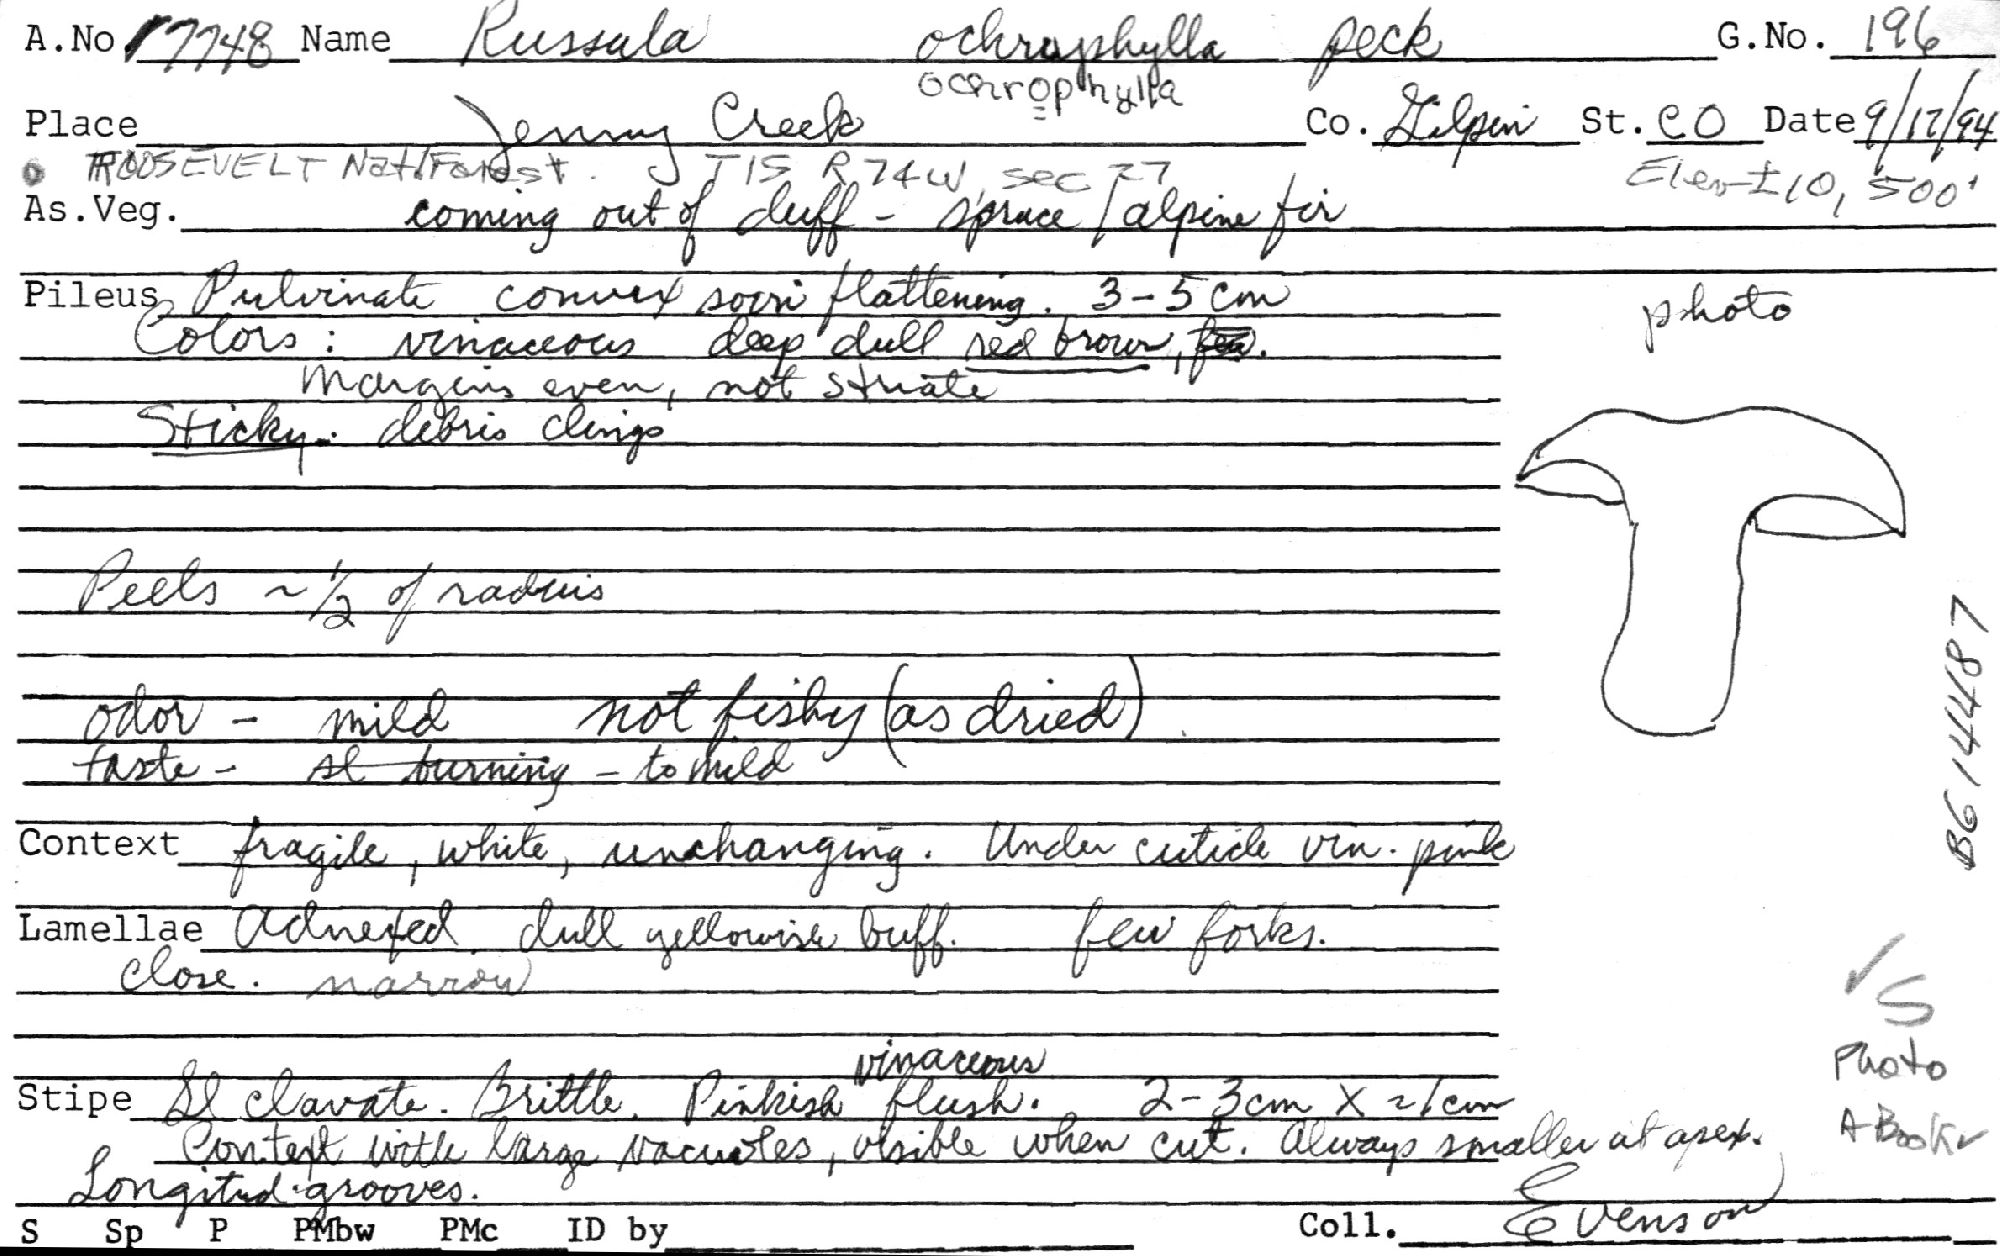 A.No 7748 Name Russula ochrophylla peck G.No. 196
ochrophylla
Place Jenny Creek Co. Gilpin St. CO Date 9/17/94
ROOSEVELT Nat'l Forest. T1S R74W, sec 27 Elev ± 10,500'
As.Veg. coming out of duff - spruce / alpine fir
Pileus Pulvinate convex soon flattening. 3-5 cm
photo
Colors: vinaceous deep dull red brown,
Margins even, not striate
Sticky: debris clings
Peels ~ 1/2 of radius
odor - mild not fishy (as dried)
taste - sl burning - to mild
Context fragile, white, unchanging. Under cuticle vin. pink
Lamellae Adnexed dull yellowish buff. few forks.
close. narrow
vinaceous
Stipe Sl clavate. Brittle. Pinkish flush. 2-3cm X ~1cm
Context with large vacuoles, visible when cut. Always smaller at apex.
Longitud. grooves.
S Sp P PMbw PMc ID by Coll. Evenson
B614487
✓ S
Photo
A Book ✓